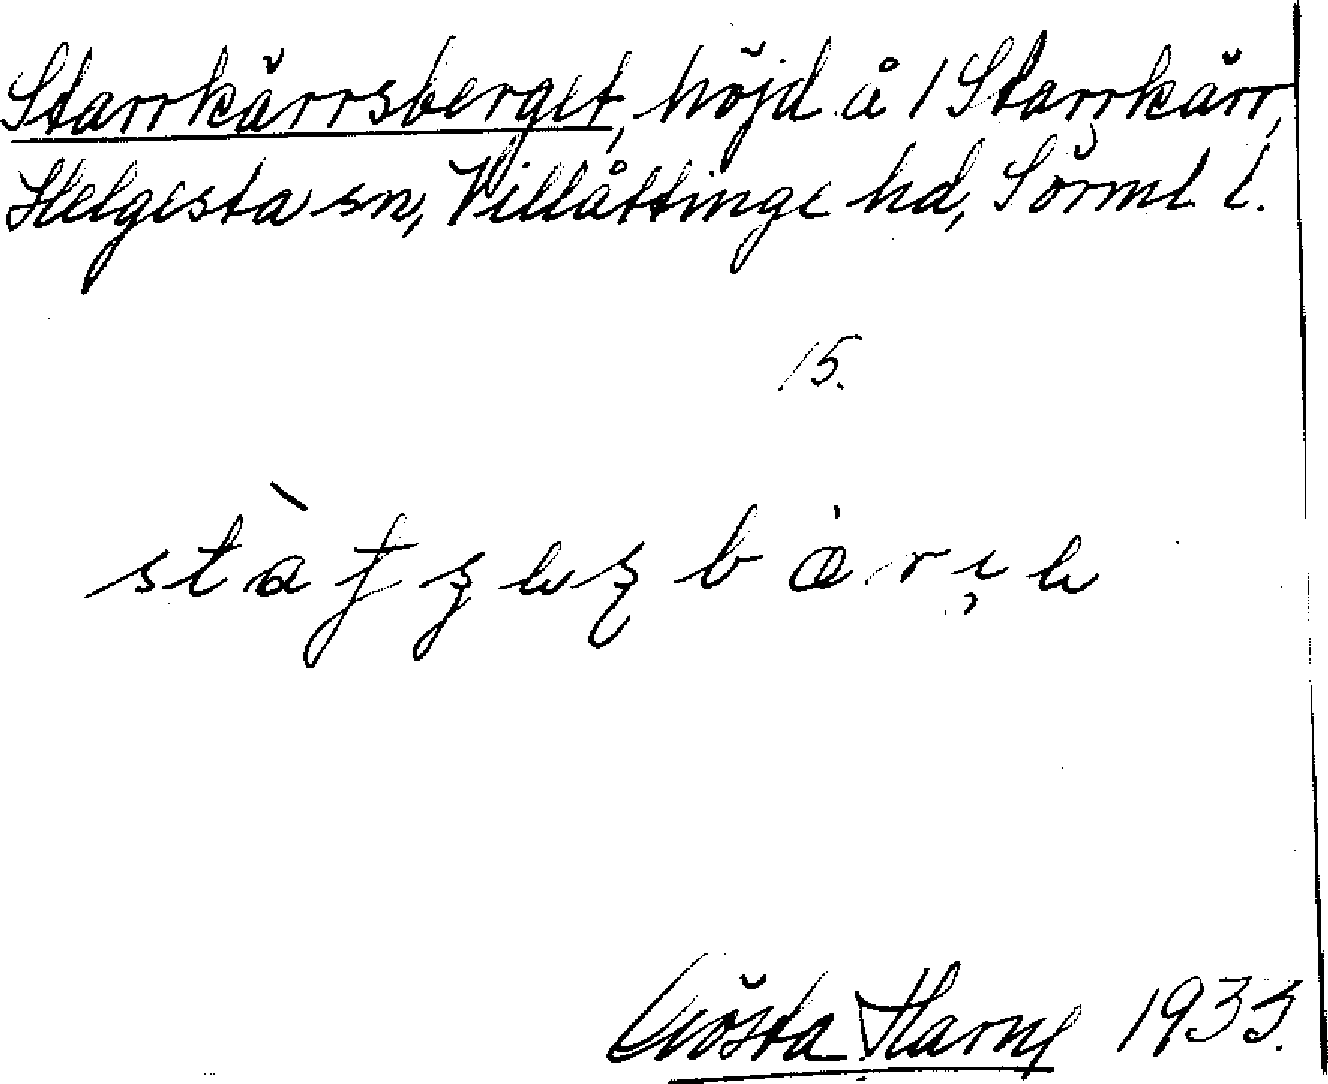 Starrkärrsberget, höjd å 1 Starrkärr,
Helgesta sn, Villåttinge hd, Sörml. l.
15.
Gösta Harnej 1933.